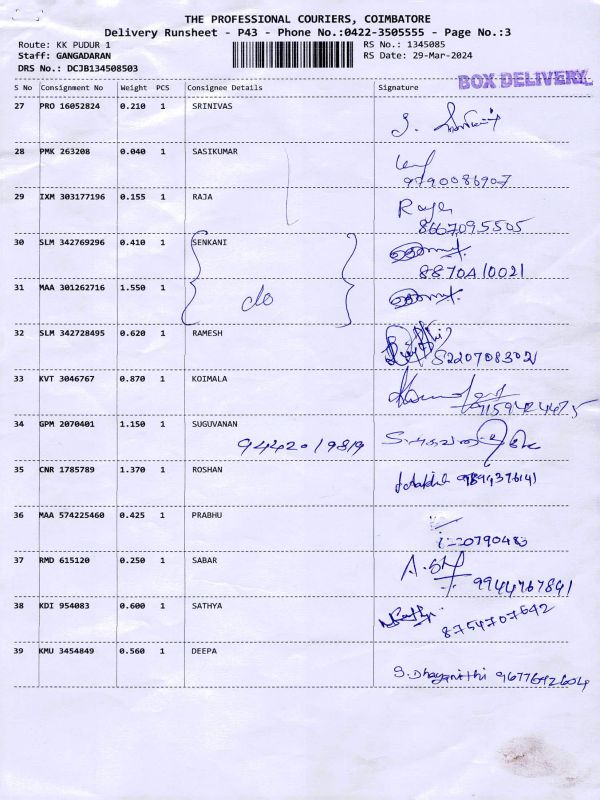 THE PROFESSIONAL COURIERS, COIMBATORE
Delivery Runsheet - P43 - Phone No.:0422-3505555 - Page No.:3
Route: KK PUDUR 1 RS No.: 1345085
Staff: GANGADARAN RS Date: 29-Mar-2024
DRS No.: DCJB134508503
BOX DELIVERY
S No Consignment No Weight PCS Consignee Details Signature
27 PRO 16052824 0.210 1 SRINIVAS
28 PMK 263208 0.040 1 SASIKUMAR
9790086907
29 IXM 303177196 0.155 1 RAJA Raja
8667095505
30 SLM 342769296 0.410 1 SENKANI
8870410021
31 MAA 301262716 1.550 1
c/o
32 SLM 342728495 0.620 1 RAMESH
33 KVT 3046767 0.870 1 KOIMALA
34 GPM 2070401 1.150 1 SUGUVANAN
9442019819
35 CNR 1785789 1.370 1 ROSHAN
36 MAA 574225460 0.425 1 PRABHU
37 RMD 615120 0.250 1 SABAR
9944767841
38 KDI 954083 0.600 1 SATHYA
8754707642
39 KMU 3454849 0.560 1 DEEPA
S. Dhayanithi 9677642604